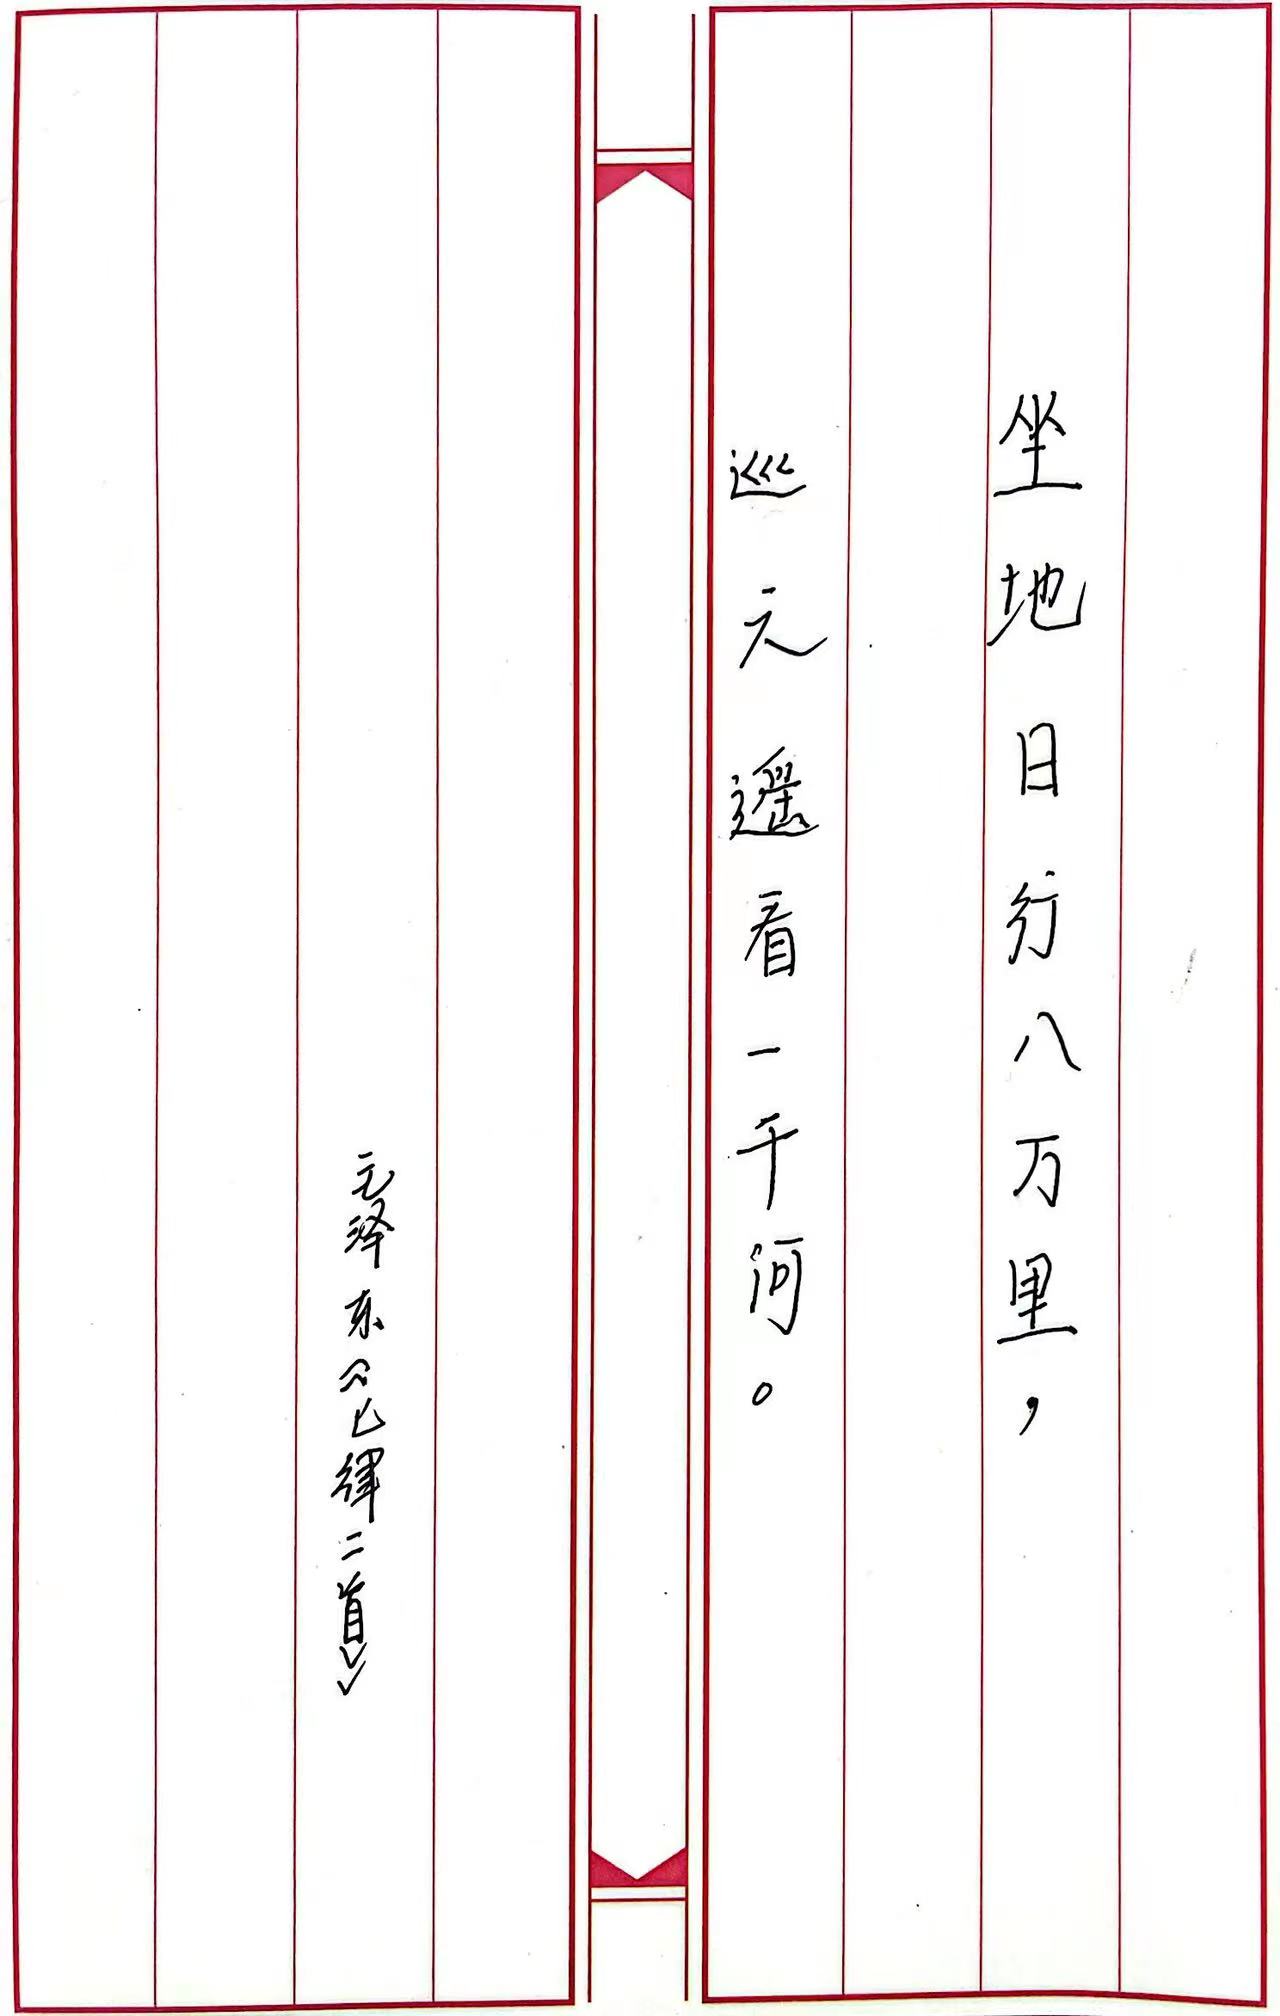 坐地日行八万里，
巡天遥看一千河。
毛泽东《七律二首》